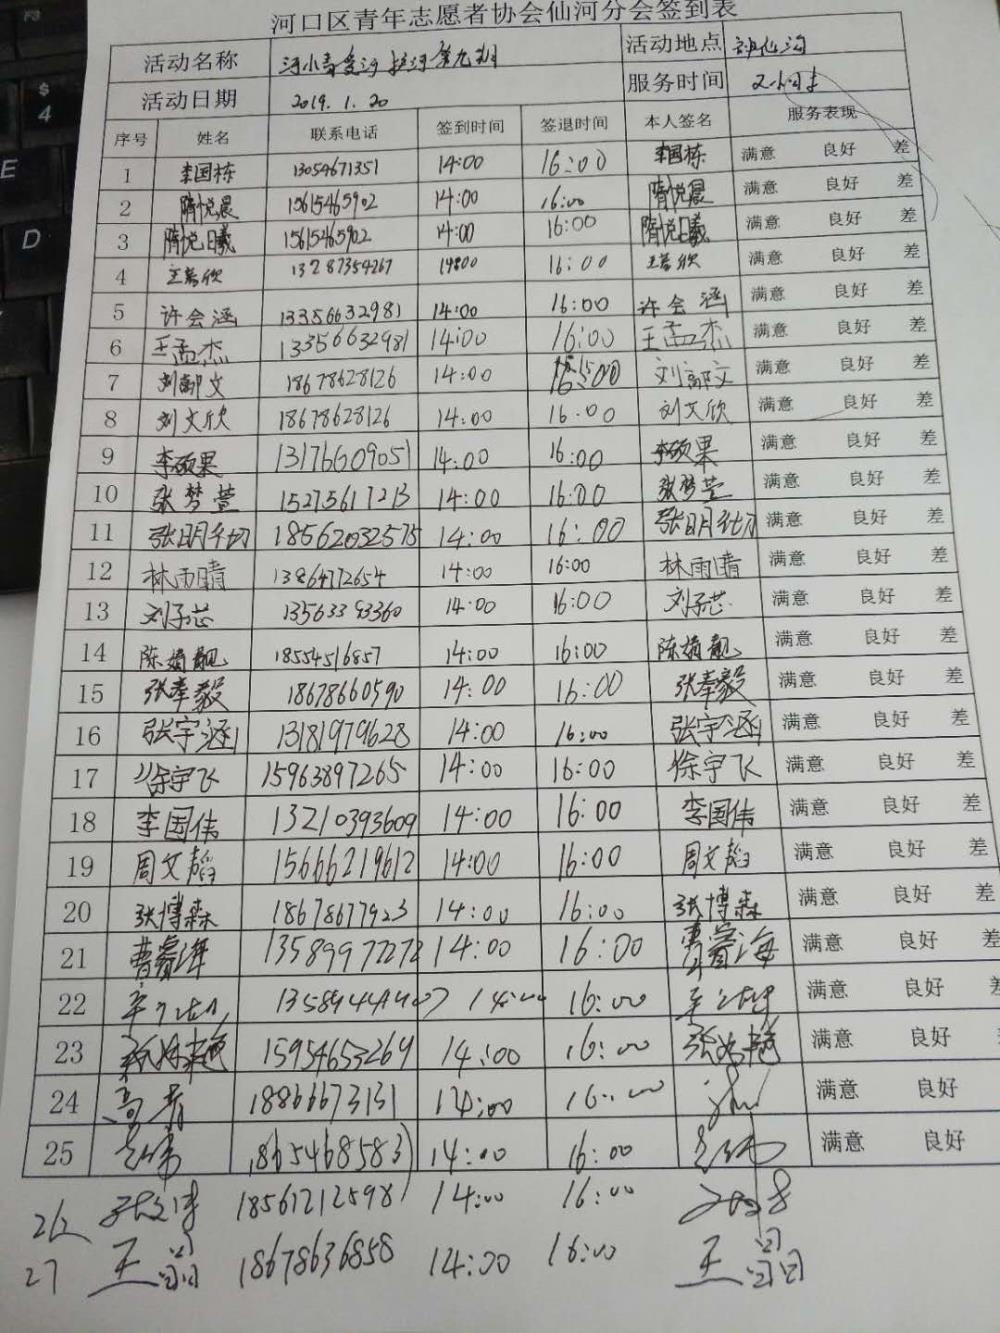 河口区青年志愿者协会仙河分会签到表
活动名称 河小青爱河护河第九期 活动地点 神仙沟
活动日期 2019.1.20 服务时间 2小时
序号 姓名 联系电话 签到时间 签退时间 本人签名 服务表现
1 李国栋 13054671351 14:00 16:00 李国栋 满意 良好 差
2 隋悦晨 15615465902 14:00 16:00 隋悦晨 满意 良好 差
3 隋悦曦 15615465902 14:00 16:00 隋悦曦 满意 良好 差
4 13287354267 14:00 16:00 满意 良好 差
5 许会涵 13356632981 14:00 16:00 许会涵 满意 良好 差
6 王孟杰 13356632981 14:00 16:00 王孟杰 满意 良好 差
7 18678628126 14:00 16:00 满意 良好 差
8 刘文欣 18678628126 14:00 16:00 刘文欣 满意 良好 差
9 李硕果 13176609051 14:00 16:00 李硕果 满意 良好 差
10 张梦萱 15275617213 14:00 16:00 张梦萱 满意 良好 差
11 18562032575 14:00 16:00 满意 良好 差
12 林雨晴 13864772654 14:00 16:00 林雨晴 满意 良好 差
13 刘子芯 13563393360 14:00 16:00 刘子芯 满意 良好 差
14 陈婧靓 18554516857 14:00 16:00 陈婧靓 满意 良好 差
15 张奉毅 18678660590 14:00 16:00 张奉毅 满意 良好 差
16 张宇涵 13181979628 14:00 16:00 张宇涵 满意 良好 差
17 徐宇飞 15963897265 14:00 16:00 徐宇飞 满意 良好 差
18 李国伟 13210393609 14:00 16:00 李国伟 满意 良好 差
19 周文韬 15666219612 14:00 16:00 周文韬 满意 良好 差
20 张博森 18678677923 14:00 16:00 张博森 满意 良好 差
21 曹睿海 13589977272 14:00 16:00 曹睿海 满意 良好 差
22 14:00 16:00 满意 良好 差
23 15954653269 14:00 16:00 满意 良好 差
24 18866673131 14:00 16:00 满意 良好
25 18654685831 14:00 16:00 满意 良好
26 18561212598 14:00 16:00
27 18678636858 14:00 16:00
$
4
E
D